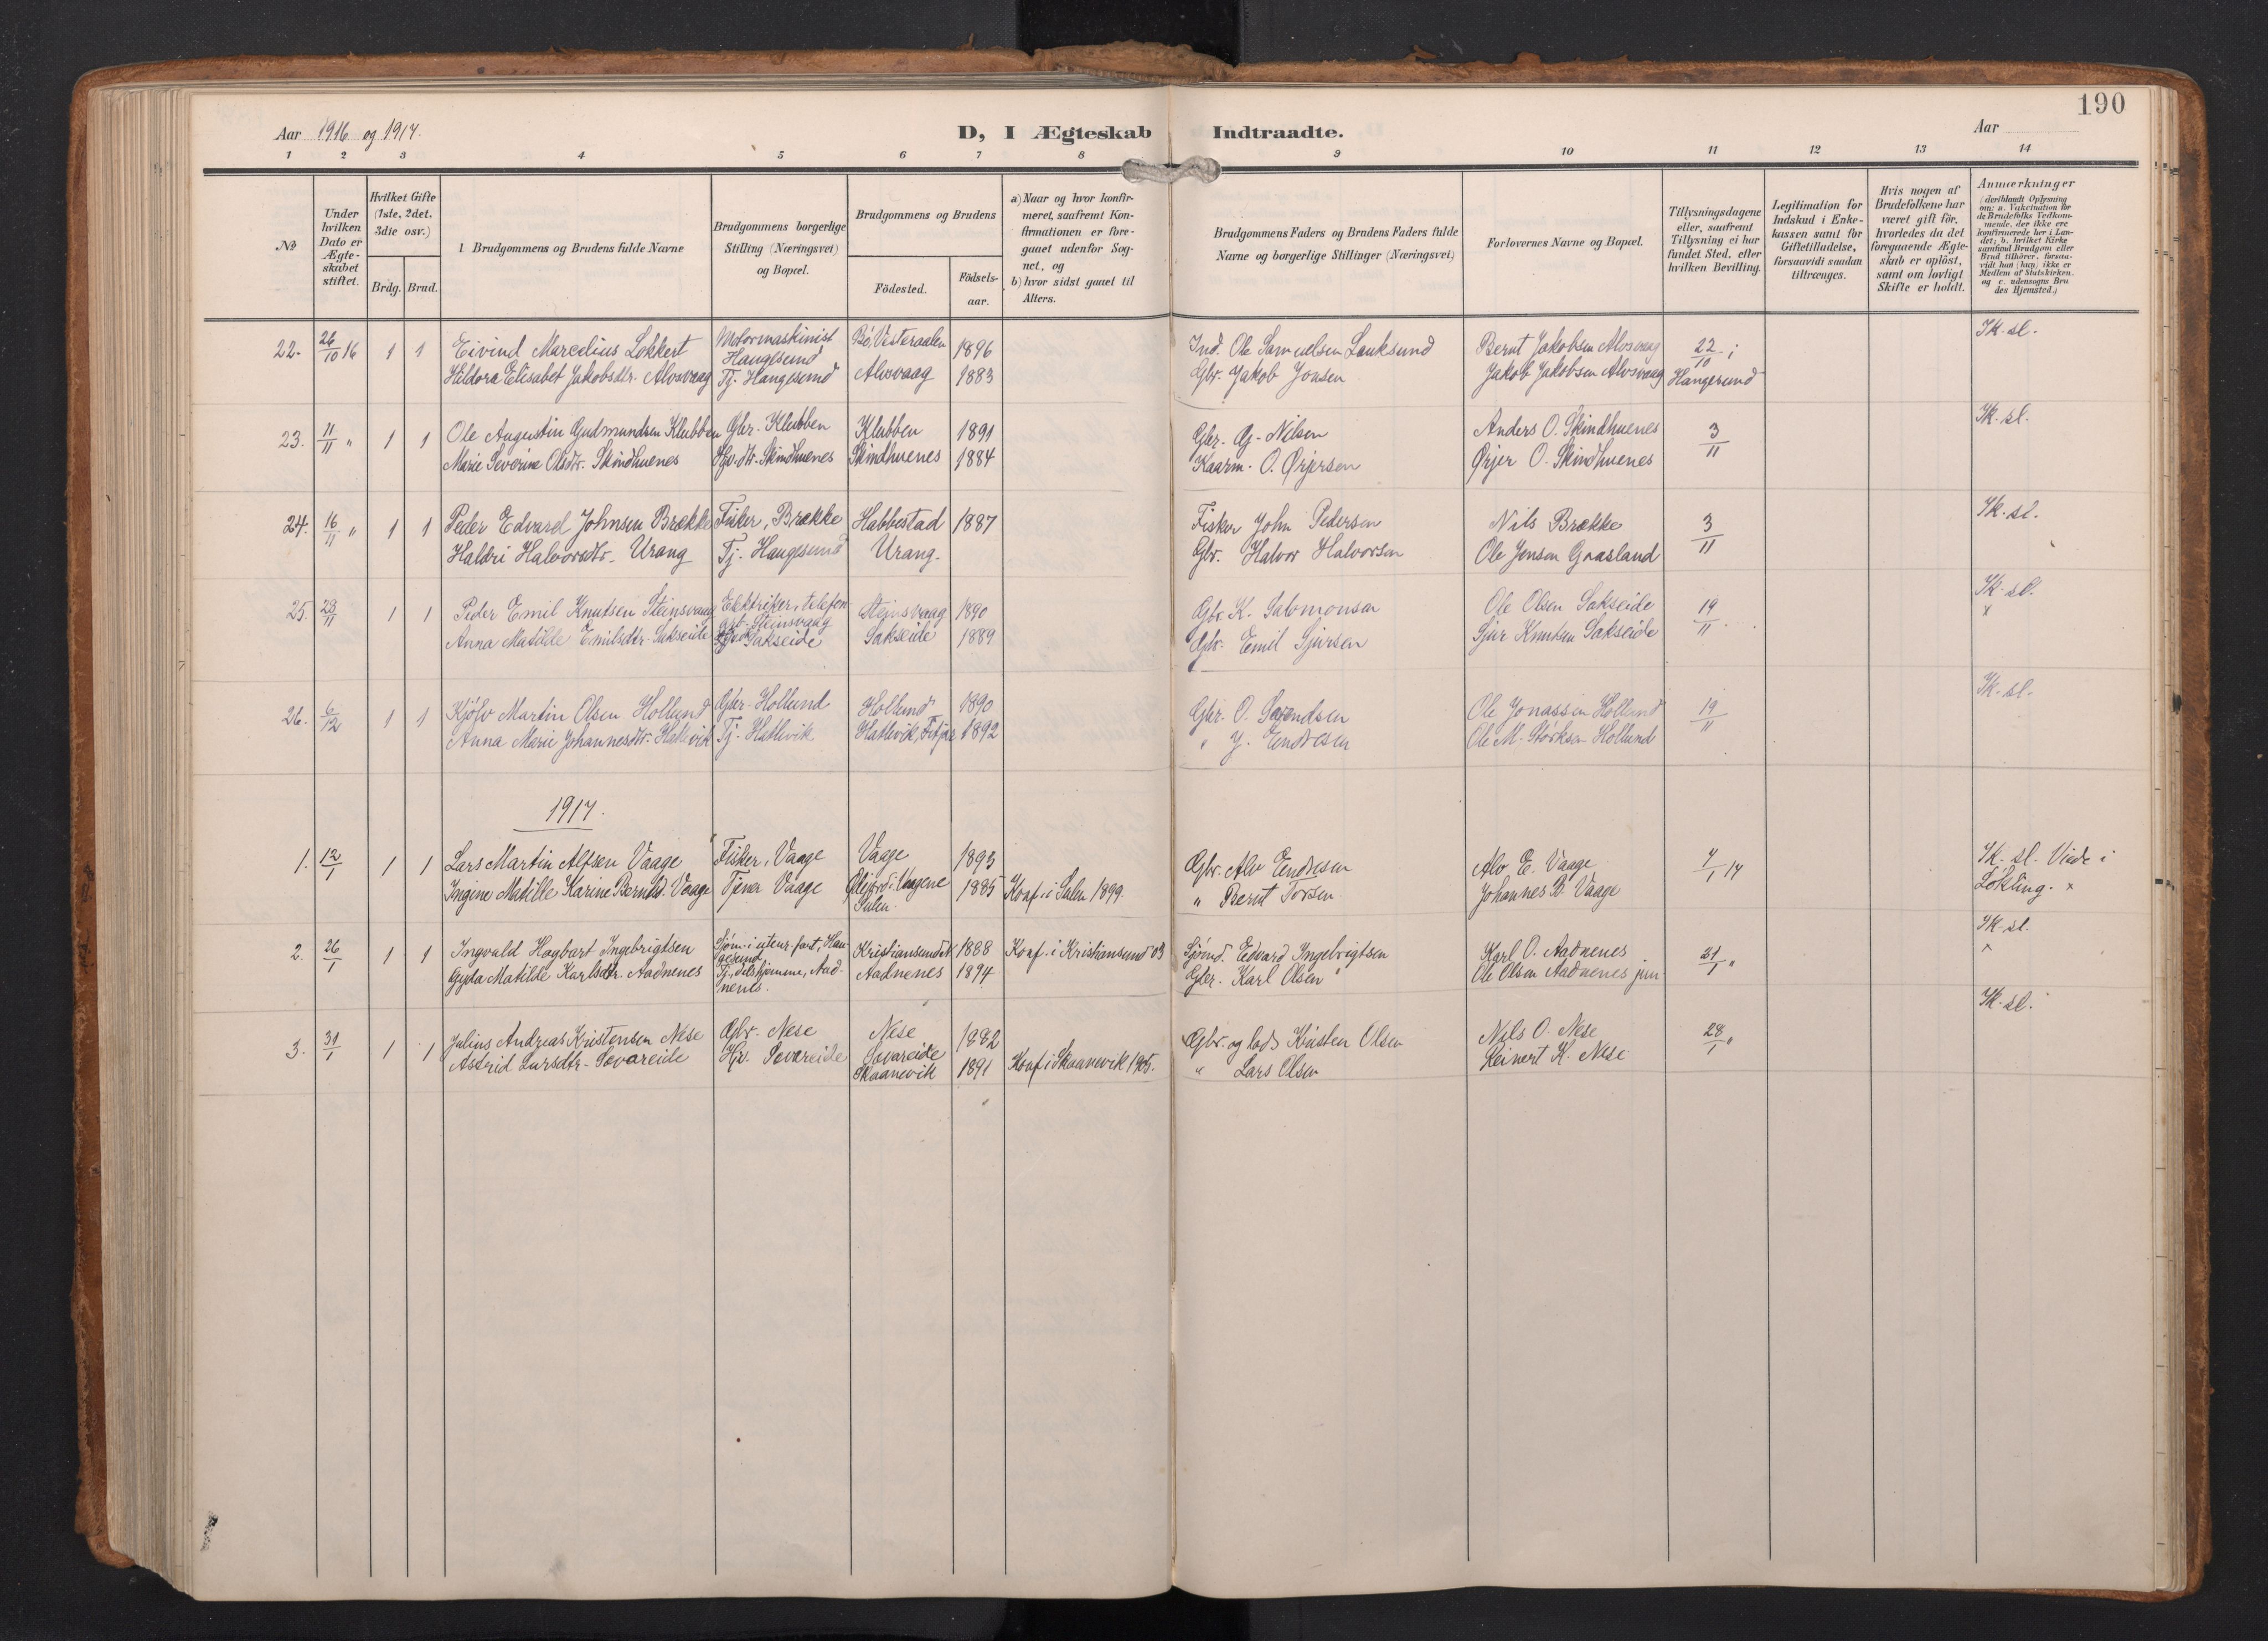 190
Aar 1916 og 1917.
D, I Ægteskab Indtraadte.
Aar
1 2 3 4 5 6 7 8 9 10 11 12 13 14
No
Under hvilken Dato er Ægteskabet stiftet.
Hvilket Gifte (1ste, 2det, 3die osv.)
Brdg. Brud.
1 Brudgommens og Brudens fulde Navne
Brudgommens borgerlige Stilling (Næringsvei) og Bopæl.
Brudgommens og Brudens
Födested.
Födsels-aar.
a) Naar og hvor konfirmeret, saafremt Konfirmationen er foregaaet udenfor Sognet, og
b) hvor sidst gaaet til Alters.
Brudgommens Faders og Brudens Faders fulde Navne og borgerlige Stillinger (Næringsvei)
Forlovernes Navne og Bopæl.
Tillysningsdagene eller, saafremt Tillysning ei har fundet Sted, efter hvilken Bevilling.
Legitimation for Indskud i Enkekassen samt for Giftetilladelse, forsaavidt saadan tiltrænges.
Hvis nogen af Brudefolkene har været gift för, hvorledes da det foregaaende Ægteskab er oplöst, samt om lovligt Skifte er holdt.
Anmærkninger (deriblandt Oplysning om: a. Vakcination for de Brudefolks Vedkommende, der ikke ere konfirmerede her i Landet; b. hvilket Kirkesamfund Brudgom eller Brud tilhörer, forsaavidt han (hun) ikke er Medlem af Statskirken. og c. udensogns Brudes Hjemsted.)
22. 26/10 16 1 1 Eivind Marcelius Lokkert Motormaskinist Haugesund Bö, Vesteraalen 1896 Ind. Ole Samuelsen Lauksund Bernt Jakobsen Alvsvaag 22/10 i Sk. sl.
Hildora Elisabet Jakobsdtr. Alvsvaag Tj. Haugesund Alvsvaag 1883 Gbr. Jakob Jonsen Jakob Jakobsen Alvsvaag Haugesund
23. 11/11 " 1 1 Ole Augustin Gudmundsen Klubben Gbr. Klubben Klubben 1891 Gbr. G. Nilsen Anders O. Skindhuenes 3/11 Sk. sl.
Marie Severine Olsdtr. Skindhuenes Skindhuenes 1884 Kaarm. O. Ørjersen Ørjer O. Skindhuenes
24. 16/11 " 1 1 Peder Edvard Johnsen Brække Fisker, Brække Habbestad 1887 Fisker John Pedersen Nils Brække 3/11 Sk. sl.
Haldri Halvorsdtr. Urang Tj. Haugesund Urang. Gbr. Halvor Halvorsen Ole Jensen Graasland
25. 29/11 1 1 Peder Emil Knutsen Steinsvaag Elektriker, telefon Steinsvaag Steinsvaag 1890 Gbr. K. Salomonsen Ole Olsen Sakseide 19/11. Sk. sl.
Anna Matilde Emilsdtr. Sakseide Sakseide Sakseide 1889 Gbr. Emil Sjursen Sjur Knutsen Sakseide x
26. 6/12 1 1 Kjölv Martin Olsen Hollund Gbr. Hollund Hollund 1890 Gbr. O. Ole Jonassen Hollund 19/11 Sk. sl.
Anna Marie Johannesdtr. Hatlevik Tj. Hatlevik Hatlevik, Fitjar 1892 " J. Endresen Ole M. Störksen Hollund
1917.
1. 12/1 1 1 Lars Martin Alfsen Vaage Fisker, Vaage Vaage 1893 Gbr. Alv Endresen Alv E. Vaage 7/1 17 Sk. sl. Viede i
Ingine Matille Karine Berntsd. Vaage Tjener Vaage Vaagene Sulen 1885 Konf. i Sulen 1899. " Bernt Torsen Johannes B. Vaage Lökling. x
2. 26/1 1 1 Ingvald Hagbart Ingebrigtsen Sjöm. i utenr. fart, Haugesund Kristiansund N 1888 Konf. i Kristiansund 03 Sjömd. Edvard Ingebrigtsen Karl O. Aadnenes 21/1 " Sk. sl.
Gyda Matilde Karlsdtr. Aadnenes Tj. Aadnenes. Aadnenes 1894 Gbr. Karl Olsen " Ole Olsen Aadnenes jun. x
3. 31/1 1 1 Julius Andreas Kristensen Nese Gbr. Nese Nese 1882 Gbr. og lods Kristen Olsen Nils O. Nese 28/1 " Sk. sl.
Astrid Larsdtr. Sovareide Hv. Sovareide Sovareide Skaanevik 1891 Konf. i Skaanevik 1905. " Lars Olsen Reinert K. Nese